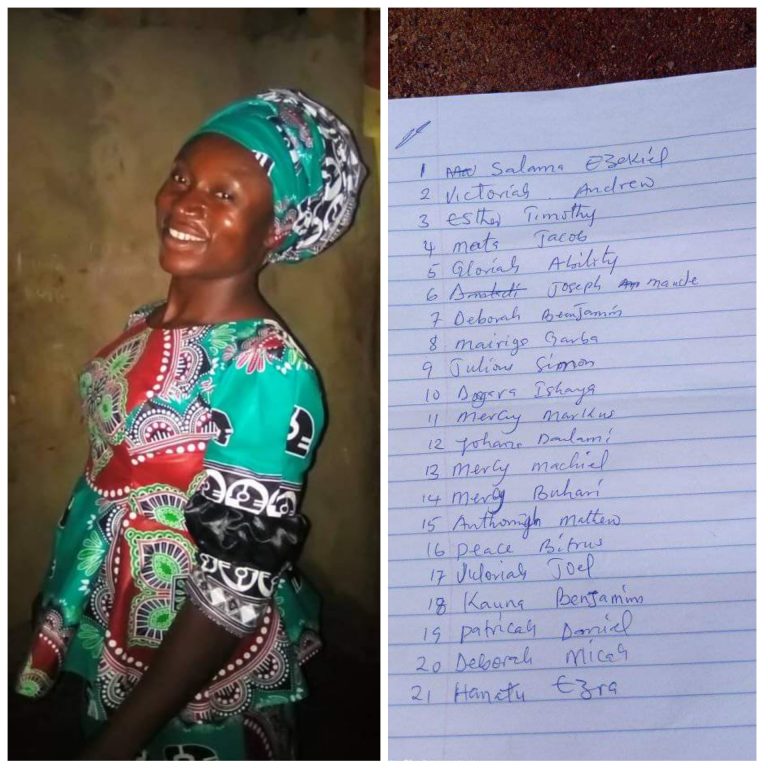 1 Salama Ezekiel
2 Victoriah Andrew
3 Esther Timothy
4 Mata Jacob
5 Gloriah Ability
6 Joseph
7 Deborah Benjamin
8 Mairiga Garba
9 Julious Simon
10 Dogara Ishaya
11 Mercy Markus
12 Yohana
13 Mercy Machiel
14 Mercy Buhari
15 Mattew
16 Peace Bitrus
17 Joel
18 Kauna Benjamin
19 Patricah Daniel
20 Deborah Micah
21 Hanatu Ezra